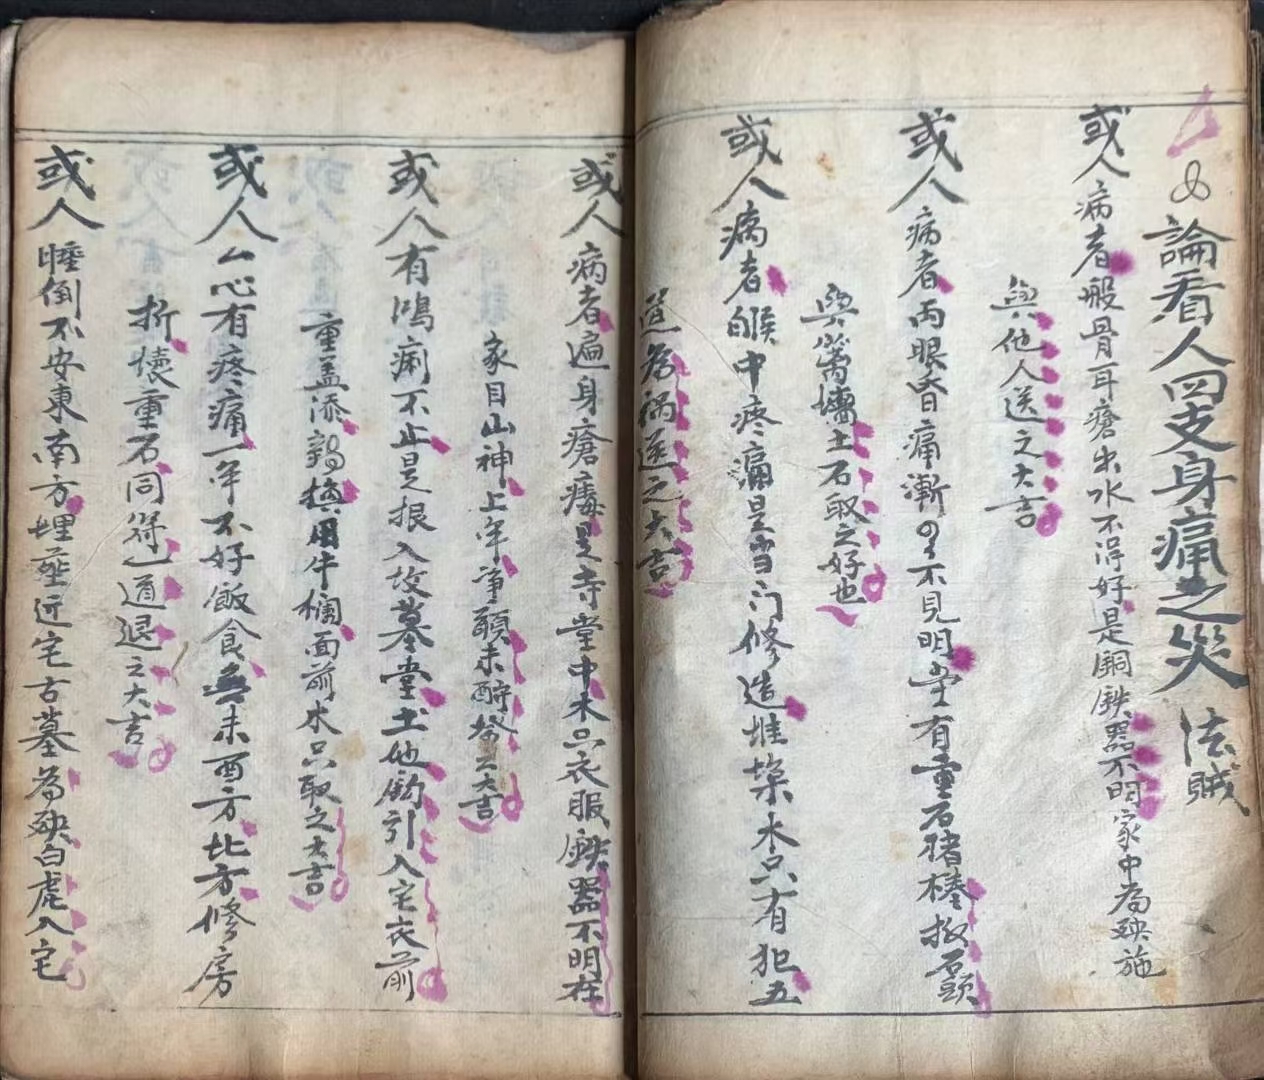 論看人四支身痛之災 法賊
或人病者般骨耳瘡出水不得好是銅鉄器不明家中為殃施
與他人送之大吉
或人病者両眼昏痛漸不見明堂有重石猪樓板石頭
與篱墻土石取之好也
或人病者喉中疼痛是当门修造堆梁木只有犯五
道為禍送之大吉
或人病者遍身瘡痍是寺堂中木只衣服鉄器不明在
家目山神上年許願未酧祭之大吉
或人有瀉痢不止是报入坟墓堂土他釣引入宅衣前
重盖添鷄換用牛欄面前木只取之大吉
或人心有疼痛一年不好飯食無未西方北方修房
折懐重石同符道退之大吉
或人睡倒不安東南方埋葬近宅古墓為殃白虎入宅